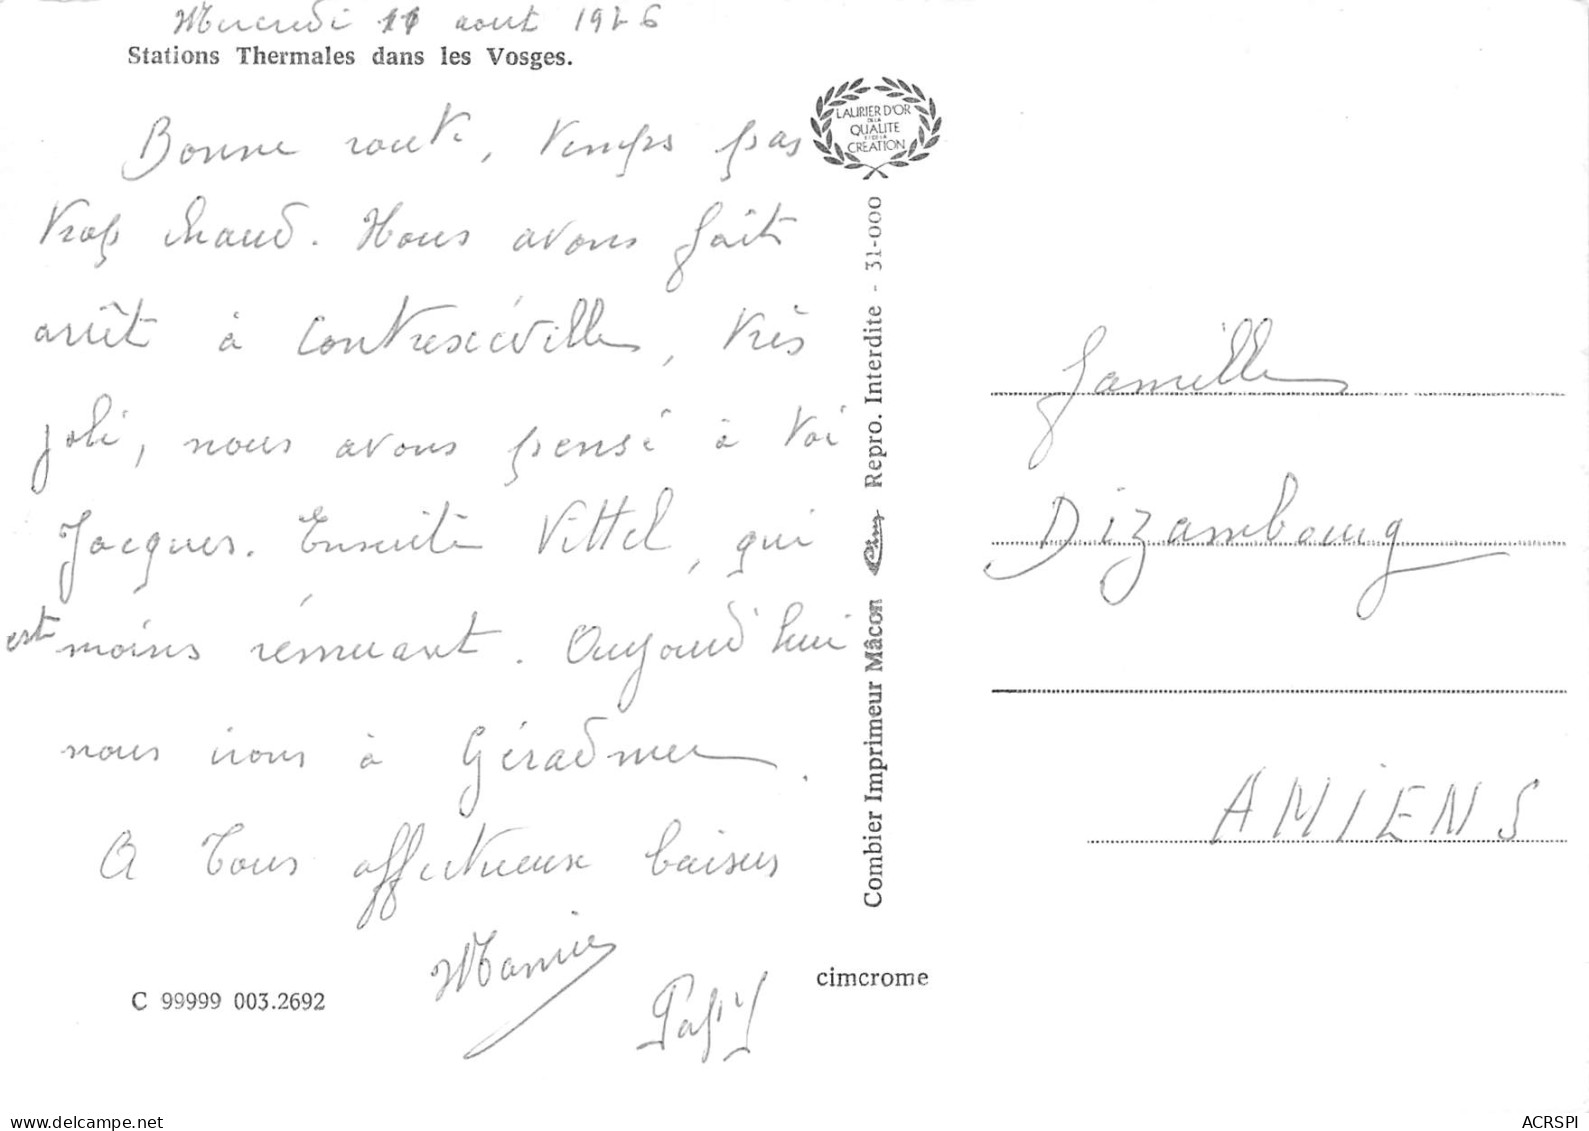 Mercredi 11 aout 1976
Stations Thermales dans les Vosges.
Bonne route, temps pas
trop chaud. Nous avons fait
arrêt à Contrexéville, très
joli, nous avons pensé à toi
Jacques. Ensuite Vittel, qui
est moins rémuant. Aujourd'hui
nous irons à Géradmer.
A Tous affectueux baisers
Mamie
Papy
C 99999 003.2692
cimcrome
LAURIER D'OR
DE LA
QUALITE
ET DE LA
CREATION
Combier Imprimeur Mâcon Cim Repro. Interdite - 31-000
famille
Dizambourg
AMIENS
www.delcampe.net
ACRSPI